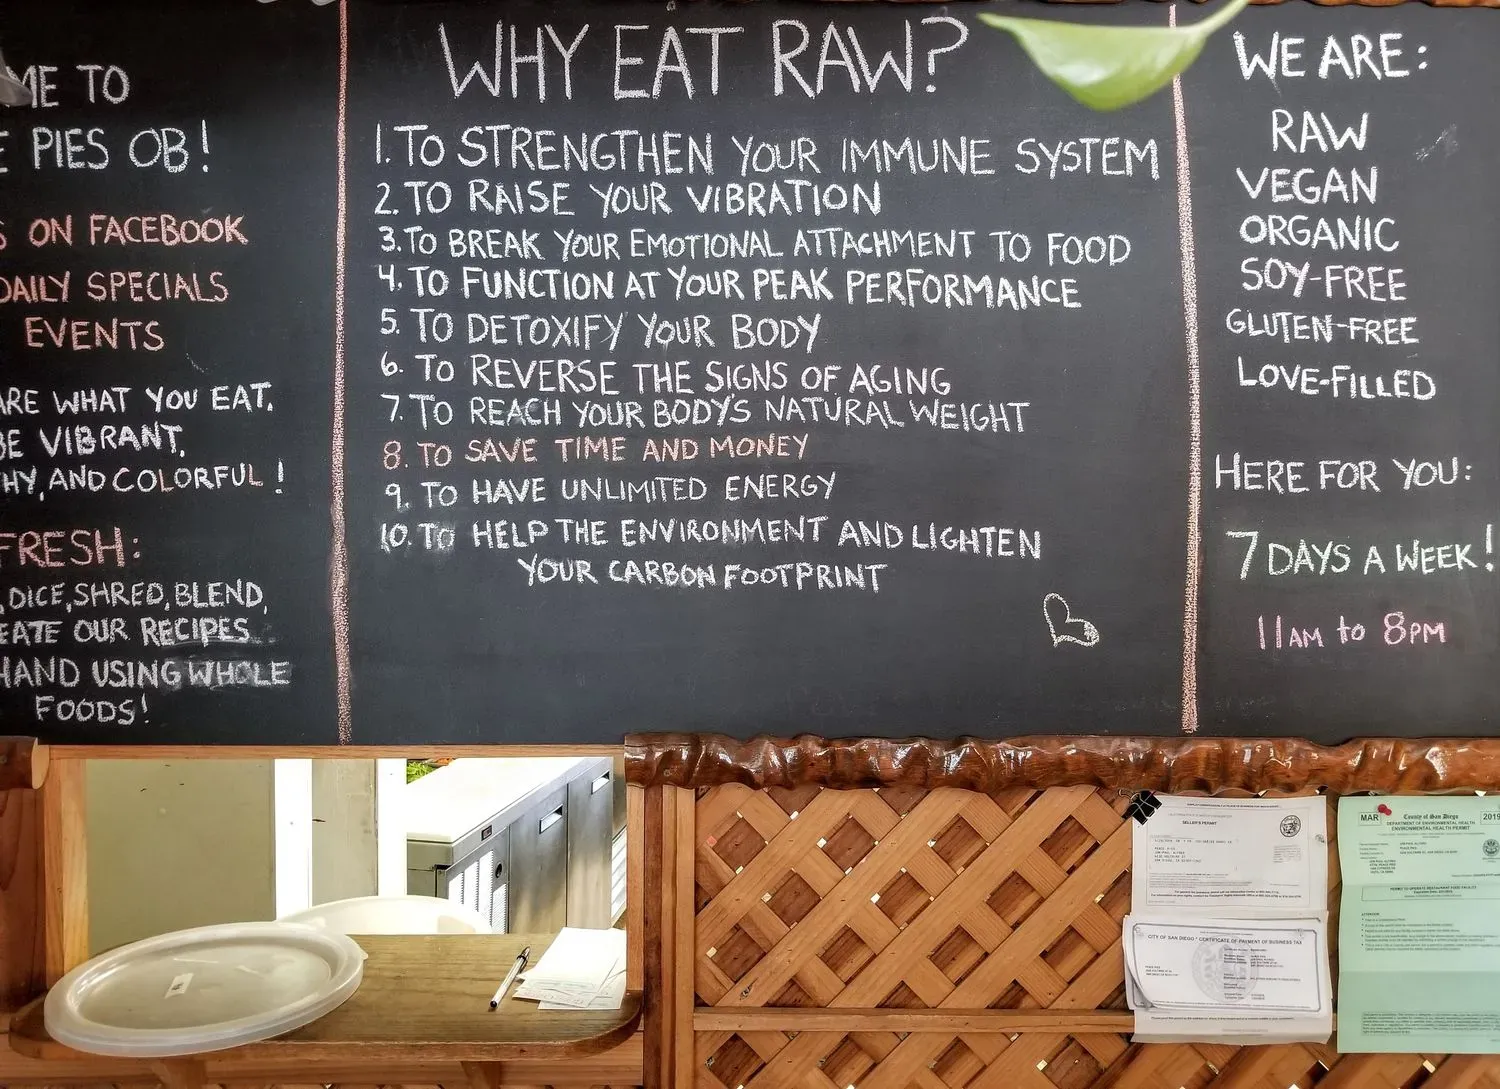 ME TO
PIES OB!
ON FACEBOOK
DAILY SPECIALS
EVENTS
ARE WHAT YOU EAT.
BE VIBRANT,
HY, AND COLORFUL!
FRESH:
, DICE, SHRED, BLEND,
EATE OUR RECIPES
HAND USING WHOLE
FOODS!
WHY EAT RAW?
1. TO STRENGTHEN YOUR IMMUNE SYSTEM
2. TO RAISE YOUR VIBRATION
3. TO BREAK YOUR EMOTIONAL ATTACHMENT TO FOOD
4. TO FUNCTION AT YOUR PEAK PERFORMANCE
5. TO DETOXIFY YOUR BODY
6. TO REVERSE THE SIGNS OF AGING
7. TO REACH YOUR BODY'S NATURAL WEIGHT
8. TO SAVE TIME AND MONEY
9. TO HAVE UNLIMITED ENERGY
10. TO HELP THE ENVIRONMENT AND LIGHTEN
YOUR CARBON FOOTPRINT
WE ARE:
RAW
VEGAN
ORGANIC
SOY-FREE
GLUTEN-FREE
LOVE-FILLED
HERE FOR YOU:
7 DAYS A WEEK!
11AM to 8PM
SELLER'S PERMIT
CITY OF SAN DIEGO * CERTIFICATE OF PAYMENT OF BUSINESS TAX
MAR
County of San Diego
2019
DEPARTMENT OF ENVIRONMENTAL HEALTH
ENVIRONMENTAL HEALTH PERMIT
PERMIT TO OPERATE RESTAURANT FOOD FACILITY
ATTENTION: